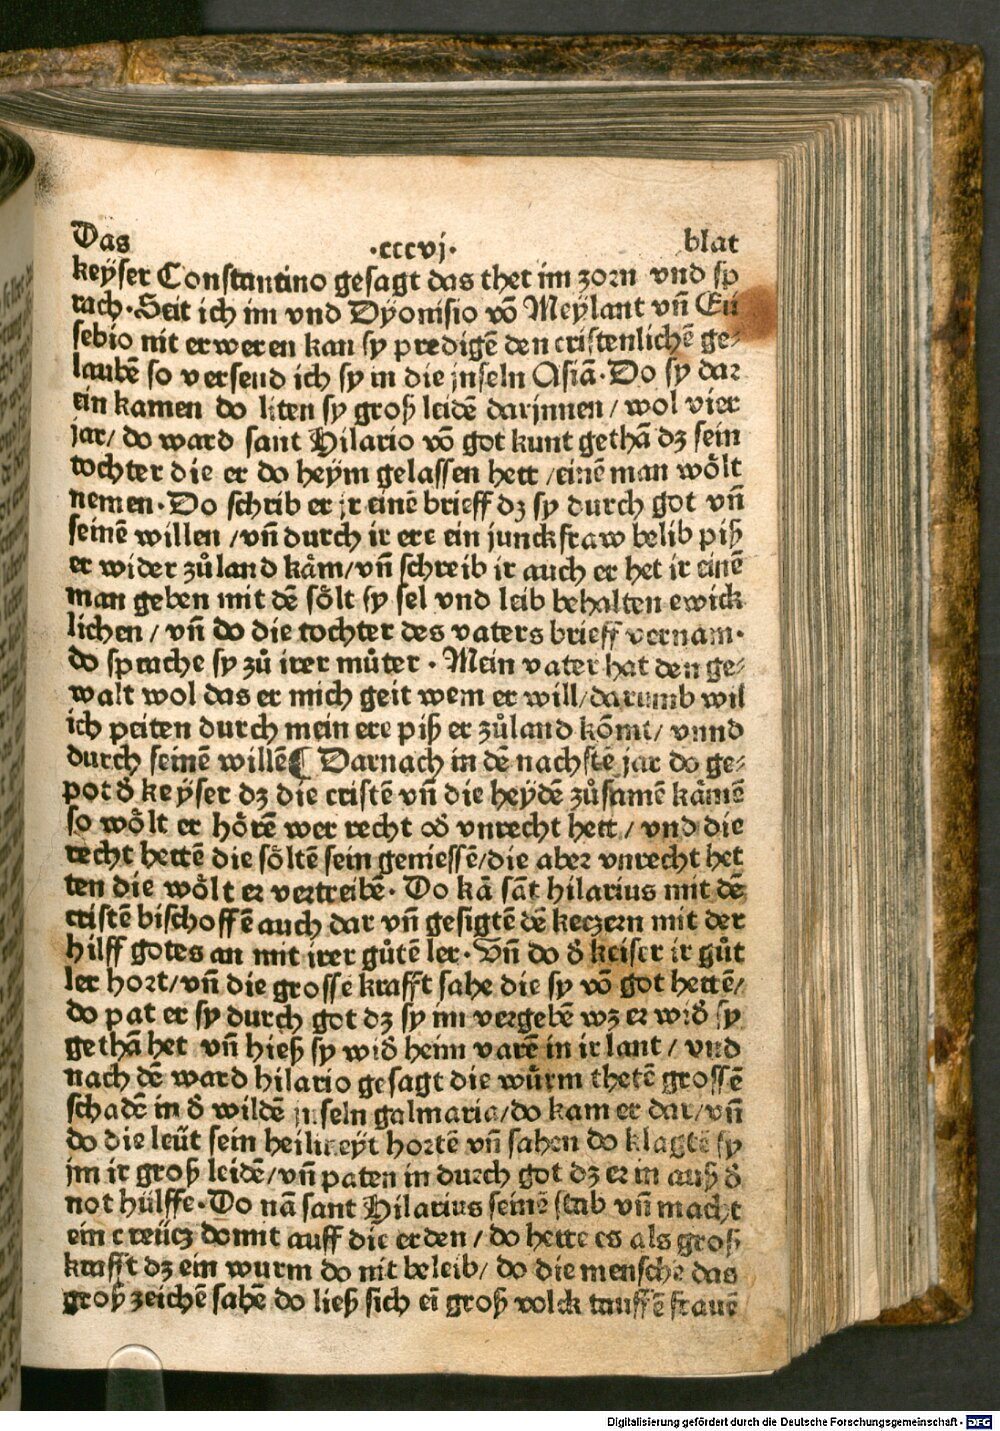 Das .cccvj. blat
keyser Constantino gesagt das thet im zorn vnd sp
rach. Seit ich im vnd Dyonisio vō Meylant vn̄ Eu
sebio nit erweren kan sy predigē den cristenlichē ge⸗
laubē so versend ich sy in die jnseln Asiā. Do sy dar
ein kamen do liten sy groß leidē darjnnen / wol vier
jar / do ward sant Hilario vō got kunt gethā dz sein
tochter die er do heym gelassen hett / einē man woͤlt
nemen. Do schrib er jr einē brieff dz sy durch got vn̄
seinē willen / vn̄ durch ir ere ein junckfraw belib piß
er wider zuͦland kaͤm / vn̄ schreib ir auch er het ir einē
man geben mit dē soͤlt sy sel vnd leib behalten ewick
lichen / vn̄ do die tochter des vaters brieff vernam.
do sprache sy zuͦ irer muͦter . Mein vater hat den ge⸗
walt wol das er mich geit wem er will / darumb wil
ich peiten durch mein ere piß er zuͦland koͤmt / vnnd
durch seinē willē ¶ Darnach in dē nachstē jar do ge⸗
pot đ keyser dz die cristē vn̄ die heydē zuͦsamē kaͤmē
so woͤlt er hoͤrē wer recht ođ vnrecht hett / vnd die
recht hettē die soͤltē sein geniessē / die aber vnrecht het
ten die woͤlt er vertreibē. Do kā sāt hilarius mit dē
cristē bischoffē auch dar vn̄ gesigtē dē keczern mit der
hilff gotes an mit irer guͦtē ler. Vn̄ do đ keiser ir guͦt
ler hort / vn̄ die grosse krafft sahe die sy vō got hettē /
do pat er sy durch got dz sy im vergebē wz er wiđ sy
gethā het vn̄ hieß sy wiđ heim varē in ir lant / vnd
nach dē ward hilario gesagt die wuͤrm thetē grossē
schadē in đ wildē jnseln galmaria / do kam er dar / vn̄
do die leuͤt sein heilikeyt hortē vn̄ sahen do klagtē sy
jm ir groß leidē / vn̄ paten in durch got dz er in auß đ
not huͤlffe. Do nā sant Hilarius seinē stab vn̄ macht
ein creuͤcz domit auff die erden / do hette es als groß
krafft dz ein wurm do nit beleib / do die menschē das
groß zeichē sahē do ließ sich eī groß volck tauffē frauē
Digitalisierung gefördert durch die Deutsche Forschungsgemeinschaft - DFG